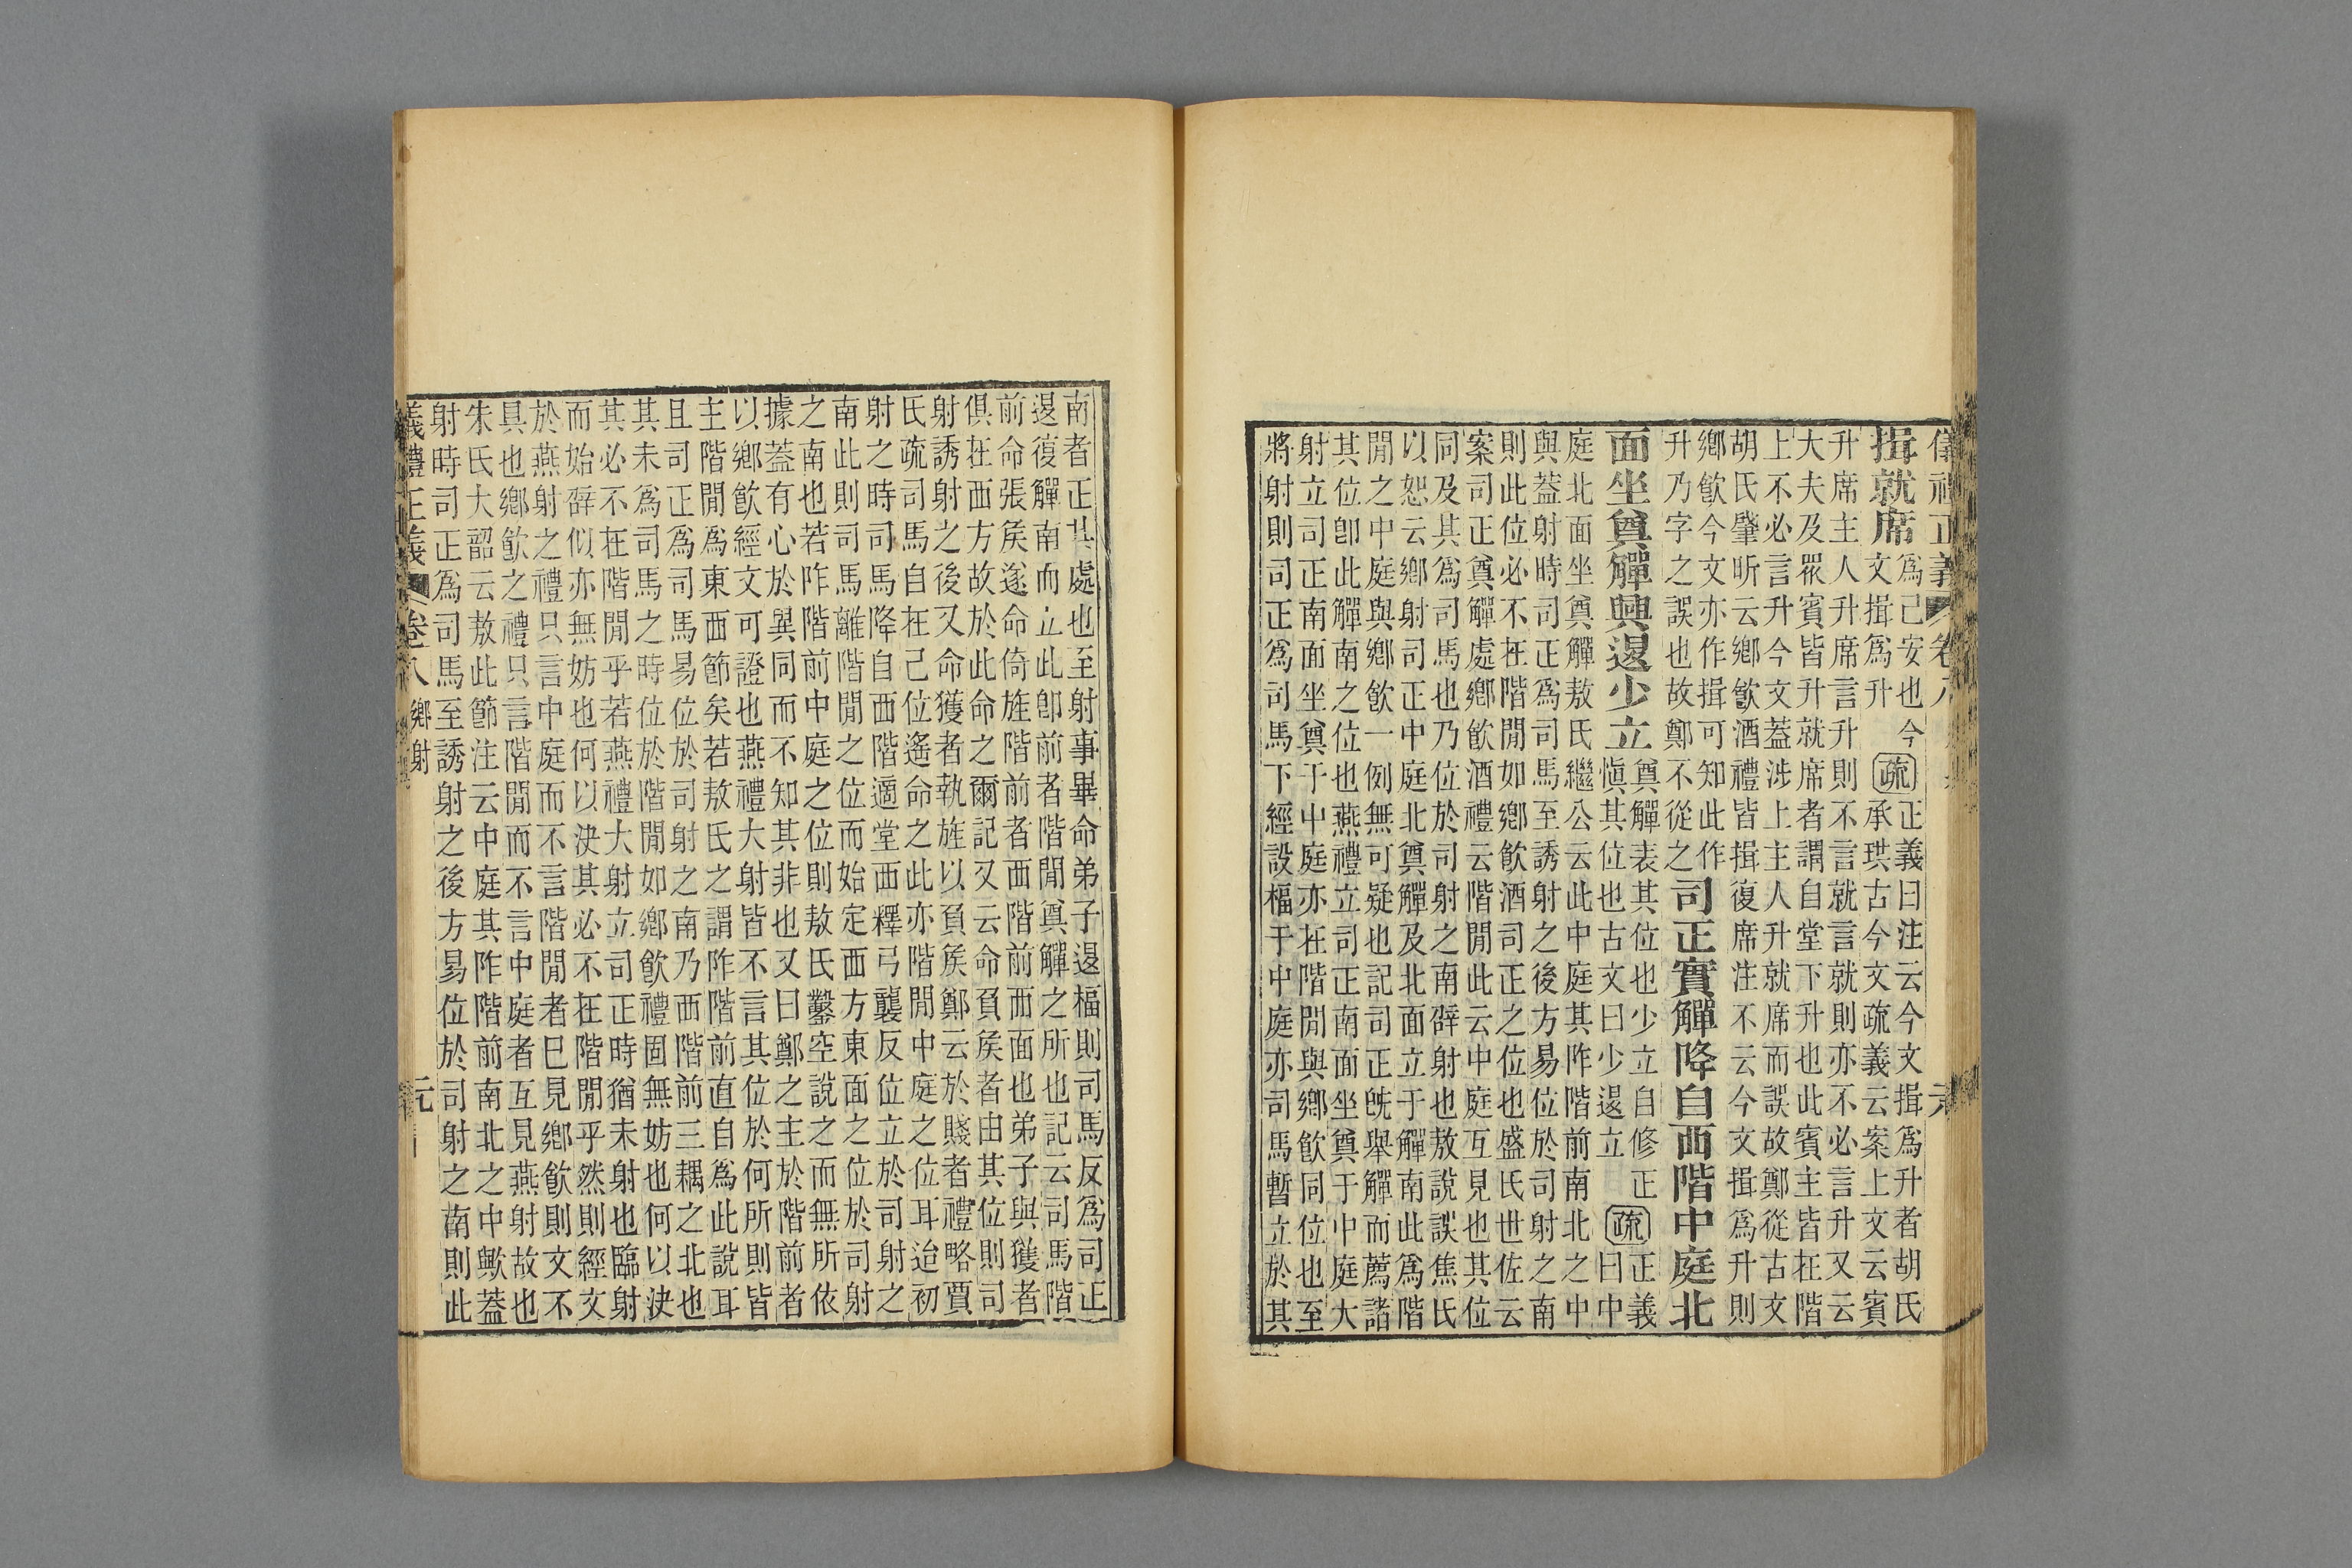 儀禮正義 卷八
揖就席
爲己安也今
文揖爲升
疏
正義曰注云今文揖爲升者胡氏
承珙古今文疏義云案上文云賓
升席主人升席言升則不言就言就則亦不必言升又云
大夫及眾賓皆升就席者謂自堂下升也此賓主皆在階
上不必言升今文蓋涉上主人升就席而誤故鄭從古文
胡氏肇昕云鄉飮酒禮皆揖復席注不云今文揖爲升則
鄉飮今文亦作揖可知此作
升乃字之誤也故鄭不從之
司正實觶降自西階中庭北
面坐奠觶興退少立
奠觶表其位也少立自修正
愼其位也古文曰少退立
疏
正義
曰中
庭北面坐奠觶敖氏繼公云此中庭其阼階前南北之中
與蓋射時司正爲司馬至誘射之後方易位於司射之南
則此位必不在階閒如鄉飮酒司正之位也盛氏世佐云
案司正奠觶處鄉飮酒禮云階閒此云中庭互見也其位
同及其爲司馬也乃位於司射之南辟射也敖說誤焦氏
以恕云鄉射司正中庭北奠觶及北面立于觶南此爲階
閒之中庭與鄉飮一例無可疑也記司正旣舉觶而薦諸
其位卽此觶南之位也燕禮立司正南面坐奠于中庭大
射立司正南面坐奠于中庭亦在階閒與鄉飮同位也至
將射則司正爲司馬下經設楅于中庭亦司馬暫立於其
南者正其處也至射事畢命弟子退楅則司馬反爲司正
退復觶南而立此卽前者階閒奠觶之所也記云司馬階
前命張侯遂命倚旌階前者西階前而面也弟子與獲者
俱在西方故於此命之爾記又云命負侯者由其位則司
射誘射之後又命獲者執旌以負侯鄭云於賤者禮略賈
氏疏司馬自在己位遙命之此亦階閒中庭之位耳迨初
射之時司馬降自西階適堂西釋弓襲反位立於司射之
南此則司馬離階閒之位而始定西方東面之位於司射
之南也若阼階前中庭之位則敖氏鑿空說之而無所依
據蓋有心於異同而不知其非也又曰鄭之主於階前者
以鄉飮經文可證也燕禮大射皆不言其位於何所則皆
主階閒爲東西節矣若敖氏之謂阼階前直自爲此說耳
且司正爲司馬易位於司射之南乃西階前三耦之北也
其未爲司馬之時位於階閒如鄉飮禮固無妨也何以決
其必不在階閒乎若燕禮大射立司正時猶未射也臨射
而始辟似亦無妨也何以決其必不在階閒乎然則經文
於燕射之禮只言中庭而不言階閒者已見鄉飮則文不
具也鄉飮之禮只言階閒而不言中庭者互見燕射故也
朱氏大韶云敖此節注云中庭其阼階前南北之中歟蓋
射時司正爲司馬至誘射之後方易位於司射之南則此
義禮正義 卷八 鄉射